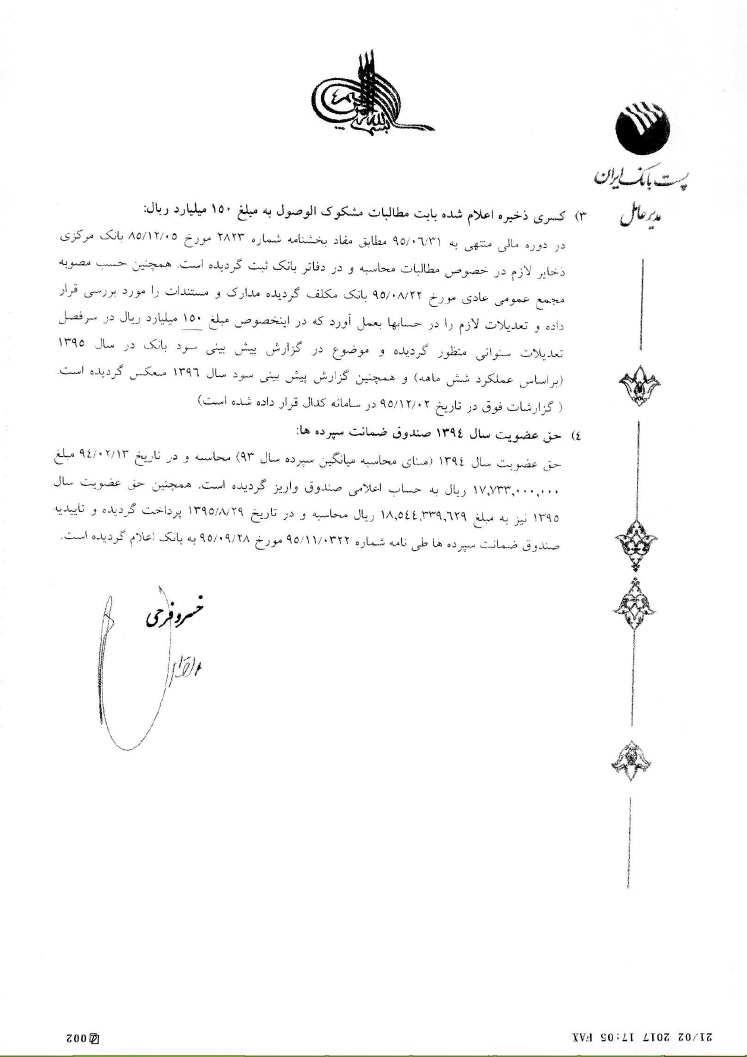 پست بانک ایران
مدیر عامل
۳) کسری ذخیره اعلام شده بابت مطالبات مشکوک الوصول به مبلغ ۱۵۰ میلیارد ریال:
در دوره مالی منتهی به ۹۵/۰۶/۳۱ مطابق مفاد بخشنامه شماره ۲۸۲۳ مورخ ۸۵/۱۲/۰۵ بانک مرکزی
ذخایر لازم در خصوص مطالبات محاسبه و در دفاتر بانک ثبت گردیده است. همچنین حسب مصوبه
مجمع عمومی عادی مورخ ۹۵/۰۸/۲۲ بانک مکلف گردیده مدارک و مستندات را مورد بررسی قرار
داده و تعدیلات لازم را در حسابها بعمل آورد که در اینخصوص مبلغ ۱۵۰ میلیارد ریال در سرفصل
تعدیلات سنواتی منظور گردیده و موضوع در گزارش پیش بینی سود بانک در سال ۱۳۹۵
(براساس عملکرد شش ماهه) و همچنین گزارش پیش بینی سود سال ۱۳۹٦ منعکس گردیده است.
( گزارشات فوق در تاریخ ۹۵/۱۲/۰۲ در سامانه کدال قرار داده شده است)
٤) حق عضویت سال ۱۳۹٤ صندوق ضمانت سپرده ها:
حق عضویت سال ۱۳۹٤ (مبنای محاسبه میانگین سپرده سال ۹۳) محاسبه و در تاریخ ۹٤/۰۲/۱۳ مبلغ
۱۷,۷۳۳,۰۰۰,۰۰۰ ریال به حساب اعلامی صندوق واریز گردیده است. همچنین حق عضویت سال
۱۳۹۵ نیز به مبلغ ۱۸,۵٤٤,۳۳۹,٦۲۹ ریال محاسبه و در تاریخ ۱۳۹۵/۸/۲۹ پرداخت گردیده و تاییدیه
صندوق ضمانت سپرده ها طی نامه شماره ۹۵/۱۱/۰۳۲۲ مورخ ۹۵/۰۹/۲۸ به بانک اعلام گردیده است.
خسرو فرحی
21/02 2017 17:05 FAX
002